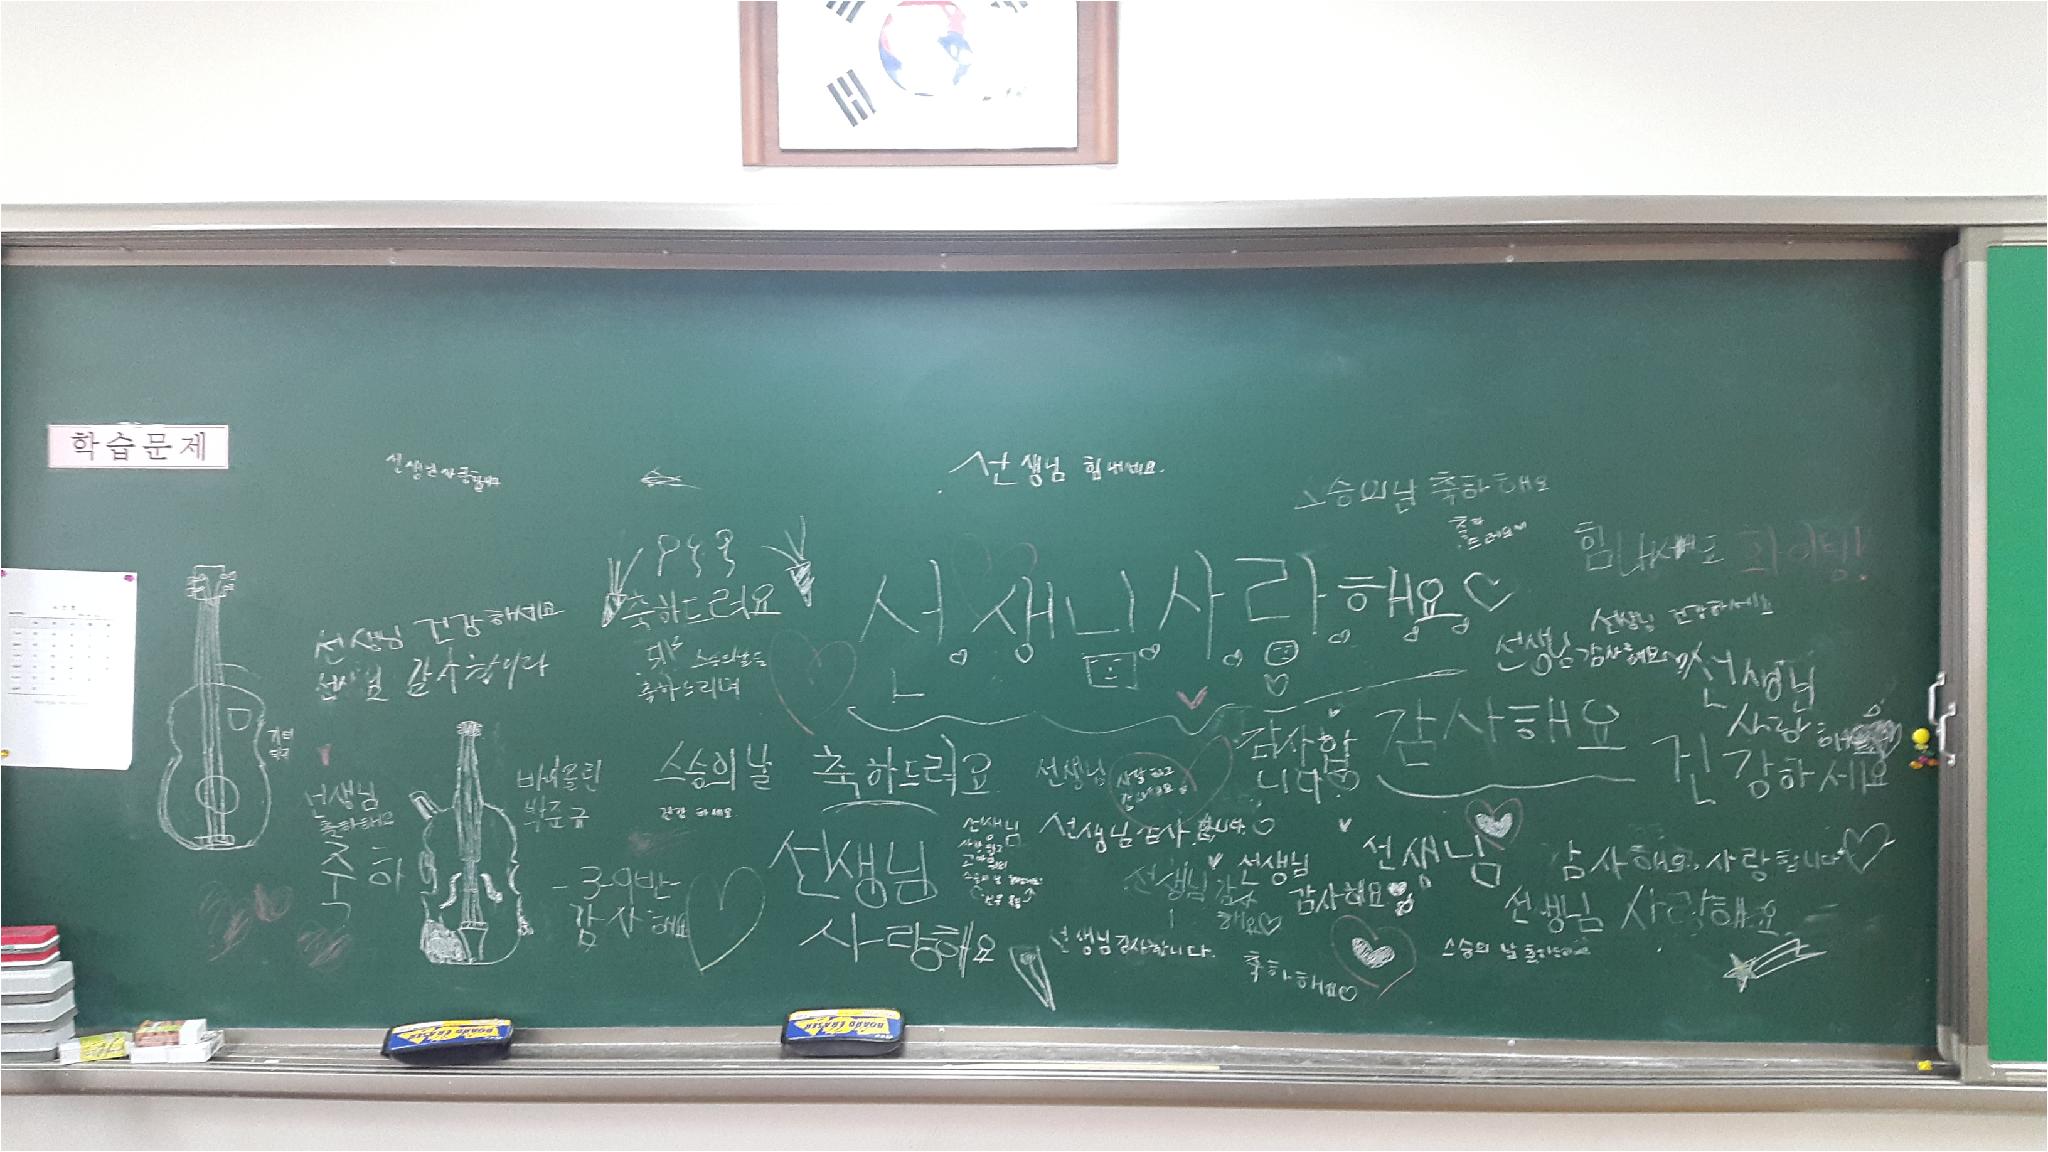 학습문제
선생님 힘내세요.
스승의날 축하해요
축하
드려요
힘내세요 화이팅!
선생님 건강하세요
축하드려요
스승의날을
축하드리며
선생님사랑해요
선생님 건강하세요
선생님 감사해요
선생님
사랑해요
건강하세요
감사해요
감사합
니다
기타
바이올린
박준규
스승의 날 축하드려요
건강 하세요
선생님
사랑하고
선생님 감사 합니다
선생님
축하해요
축하
-3-9반-
감사해요
선생님
사랑해요
선생님
선생님 감사
해요
선생님
감사해요
선생님
감사해요, 사랑합니다
선생님 사랑해요
선생님감사합니다.
축하해요
스승의 날
BOARD ERASER
BOARD ERASER